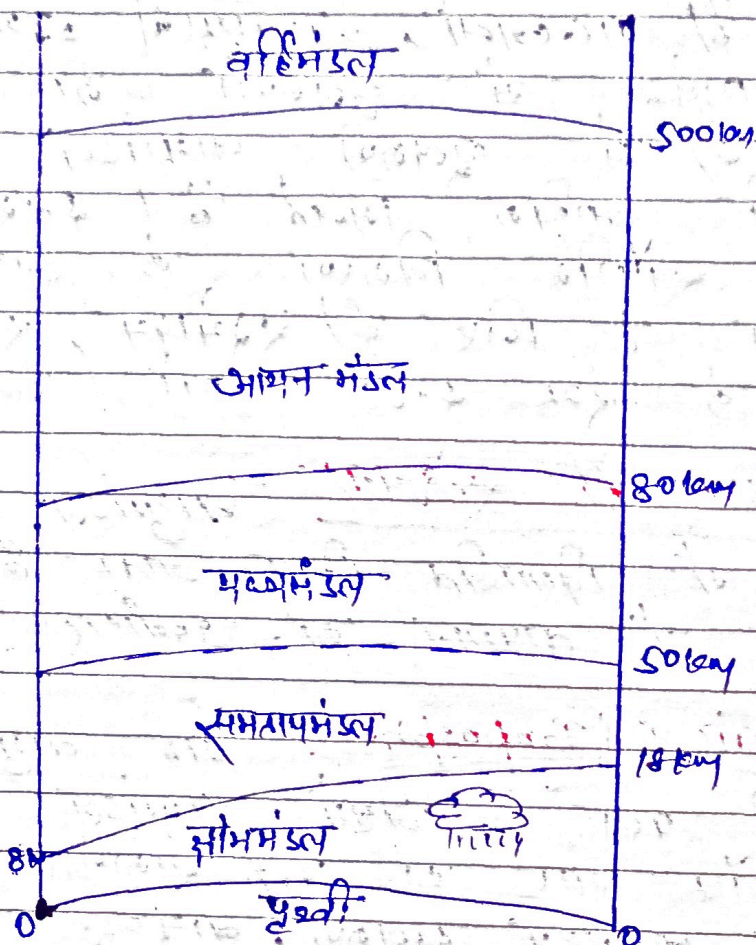 वर्हिमंडल
500km
आयन मंडल
80km
मध्यमंडल
50km
समतापमंडल
18km
8k
क्षोभमंडल
पृथ्वी
0
0